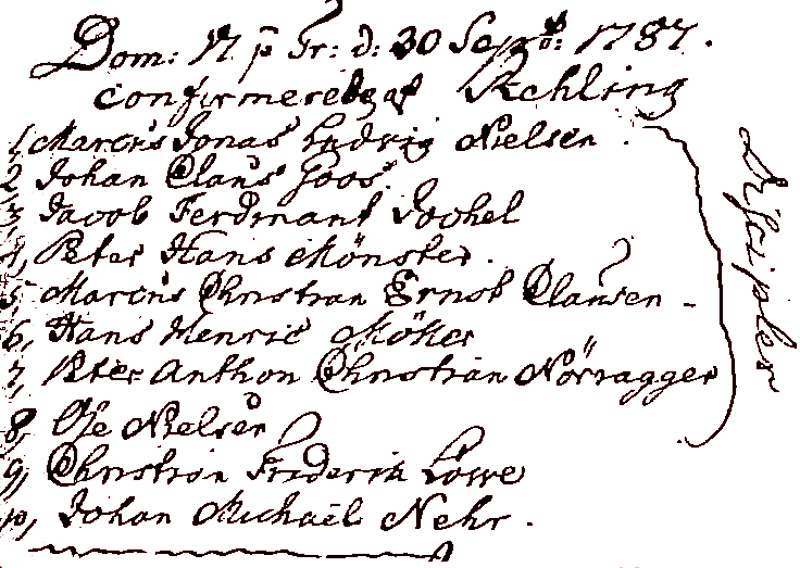 Dom: 17 p Tr: d: 30 Septbr: 1787.
confirmerede af Rehling
1, Marcus Jonas Ludvig Nielsen.
2 Johan Claus Goos.
3 Jacob Ferdinant Jochel
4, Peter Hans Mönster.
5, Marcus Christian Ernst Clausen -
6, Hans Henric Möller
7, Peter Anthon Christian Nörragger
8, Ole Nielsen
9, Christian Friderik Löwe
10, Johan Michaël Nehr.
Discipler